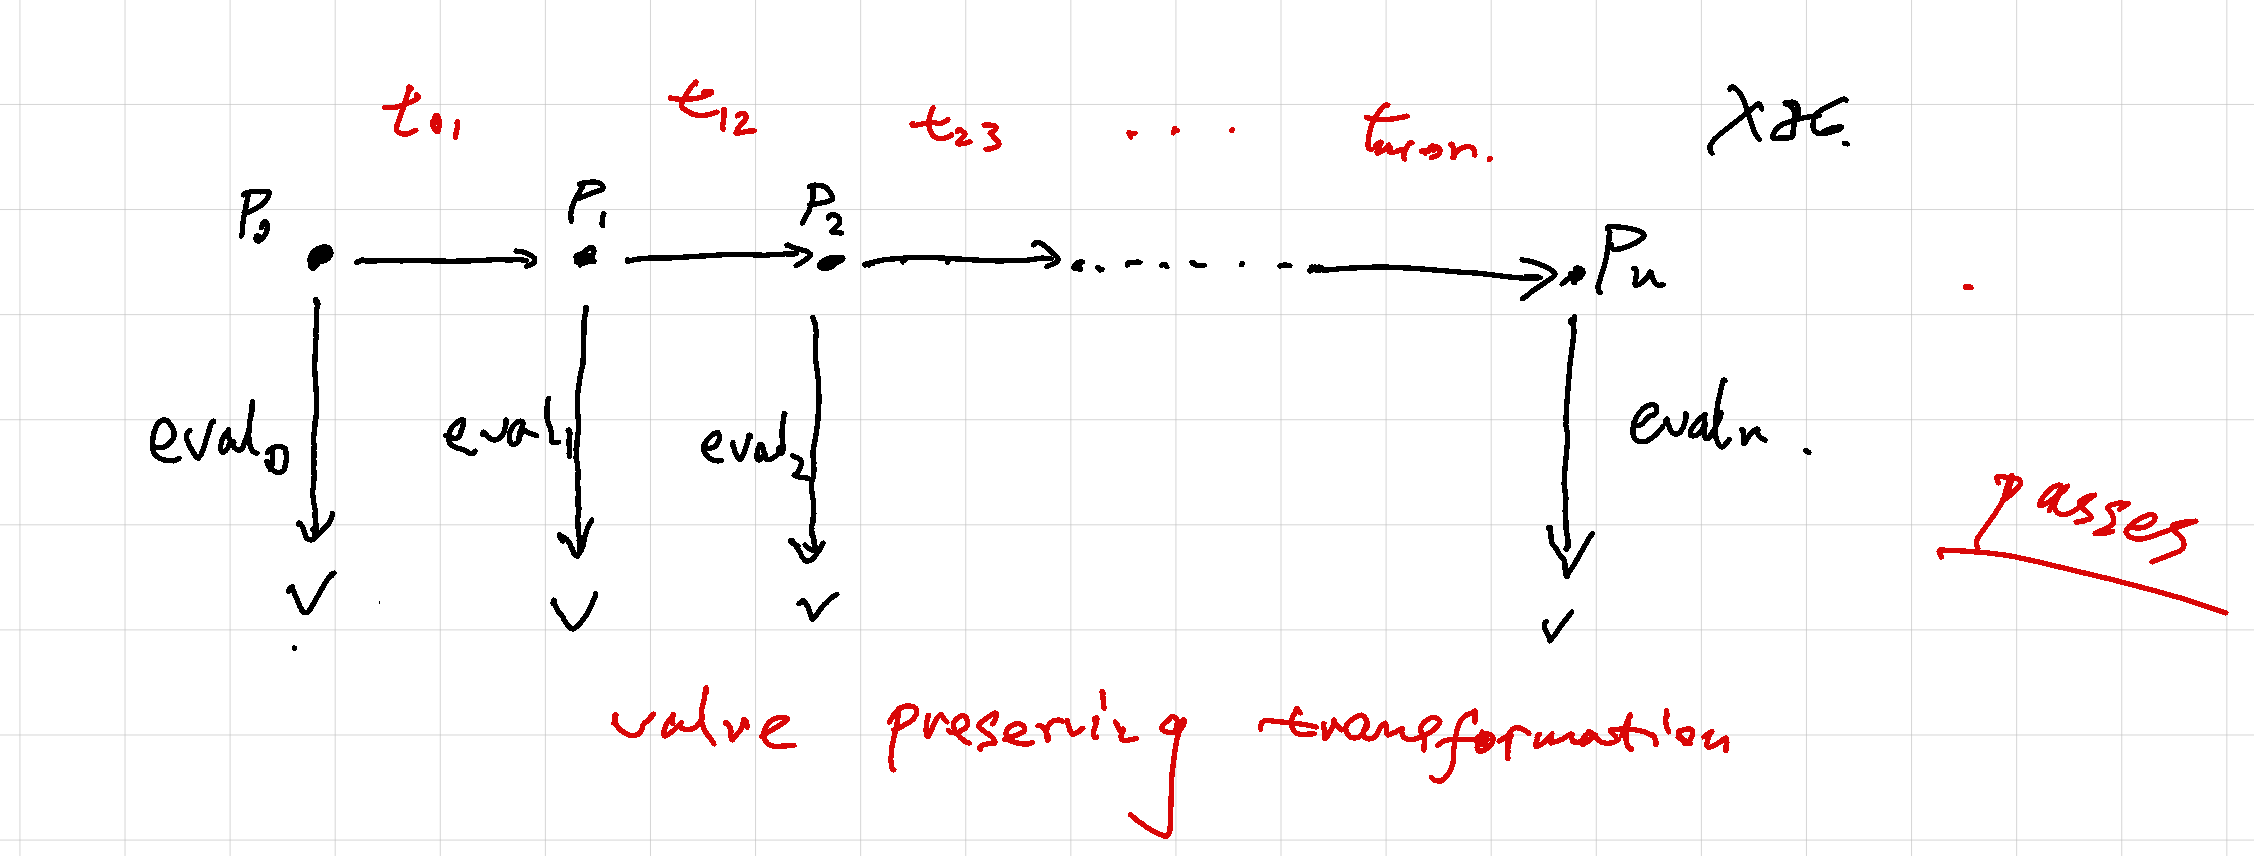 t₀₁ t₁₂ t₂₃ . . . X86.
P₀ P₁ P₂ Pn
eval₀ eval₁ eval₂ evaln.
passes
V V V V
value preserving transformation